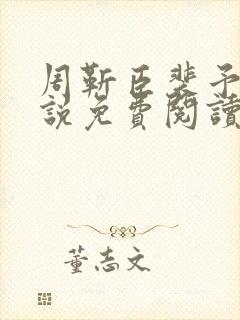 周靳臣裴予
說免費閱讀
董志文